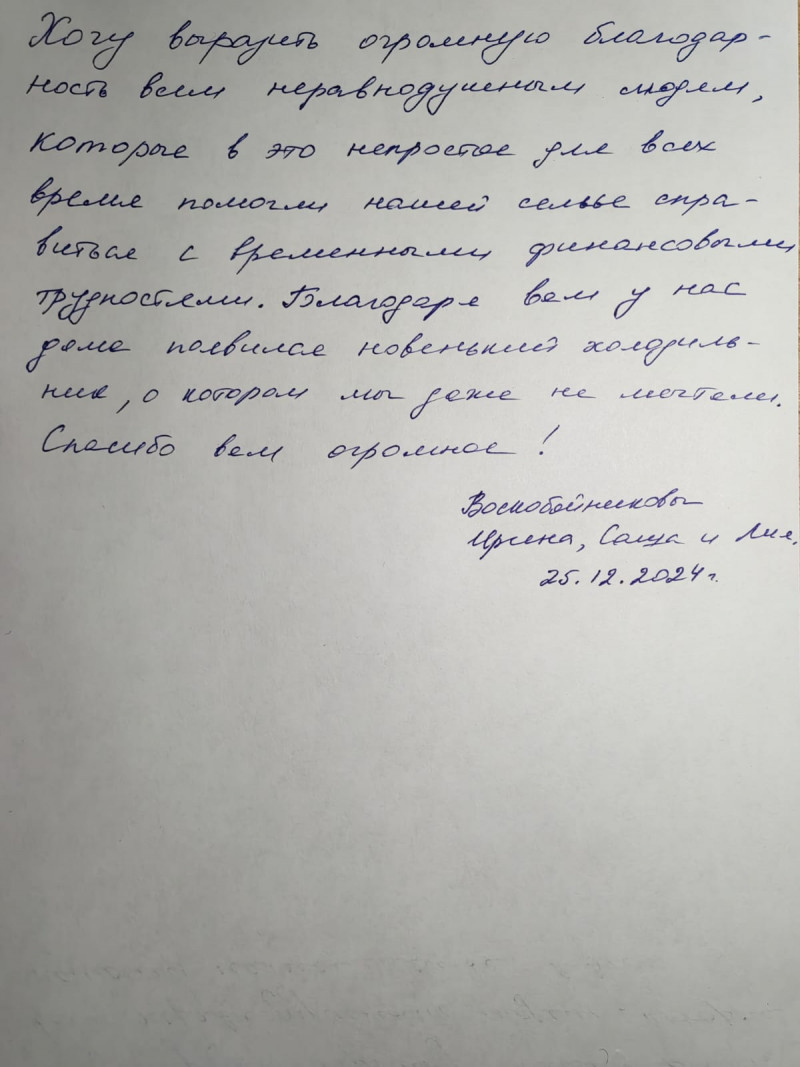 Хочу выразить огромную благодар-
ность всем неравнодушным людям,
которые в это непростое для всех
время помогли нашей семье спра-
виться с временными финансовыми
трудностями. Благодаря вам у нас
дома появился новенький холодиль-
ник, о котором мы даже не мечтали.
Спасибо вам огромное!
Воскобойниковы
Ирина, Саша и Лия.
25.12.2024г.